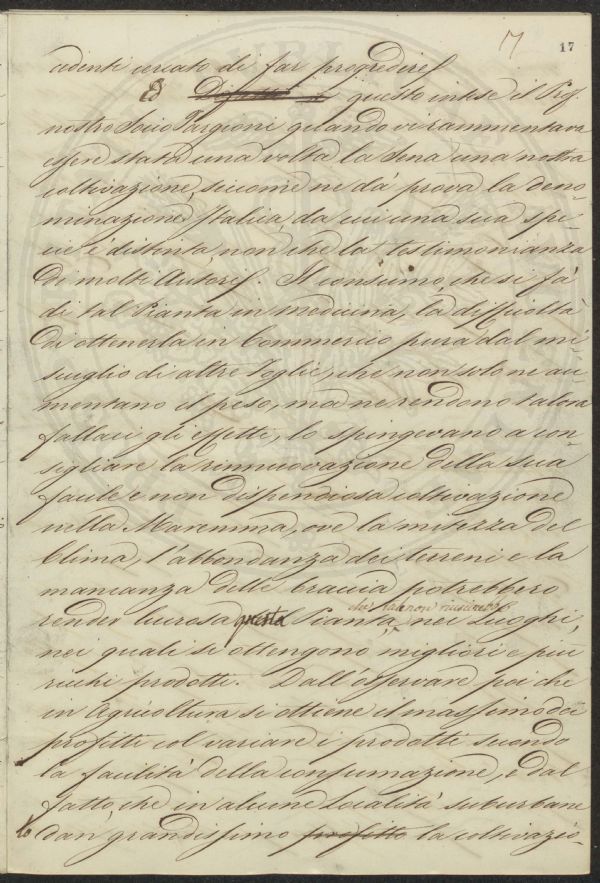 17 17
cidenti cercato di far progredire
Ed Difatti a questo intese il Prof.
nostro Socio Targioni quando vi rammentava
esser stata una volta la Sena una nostra
coltivazione, siccome ne dà prova la deno-
minazione Italica, da cui una sua spe-
cie è distinta, non che la testimonianza
di molti Autori. Il consumo, che si fà
di tal Pianta in Medicina, la difficoltà
di ottenerla in Commercio pura dal mi-
scuglio di altre foglie, che non solo ne au-
mentano il peso, ma ne rendono talora
fallaci gli effetti, lo spingevano a con-
sigliare la rinnuovazione della sua
facile e non dispendiosa coltivazione
nella Maremma, ove la mitezza del
Clima, l'abbondanza dei terreni e la
mancanza delle braccia potrebbero
che tale non riuscirebbe
render lucrosa questa Pianta, nei Luoghi,
nei quali si ottengono migliori e più
ricchi prodotti. Dall'osservare poi che
in Agricoltura si ottiene il massimo dei
profitti col variare i prodotti secondo
la facilità della consumazione, e dal
fatto, che in alcune Località suburbane
dan grandissimo profitto la coltivazio-